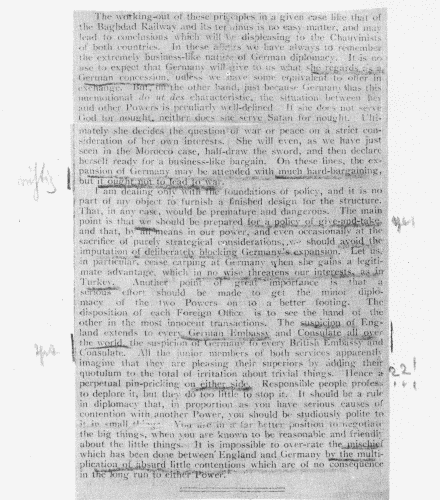 The working-out of these principles in a given case like that of
the Baghdad Railway and its terminus is no easy matter, and may
lead to conclusions which will be displeasing to the Chauvinists
of both countries. In these affairs we have always to remember
the extremely business-like nature of German diplomacy. It is no
use to expect that Germany will give to us what she regards as a
German concession, unless we have some equivalent to offer in
exchange. But, on the other hand, just because Germany has this
unemotional do ut des characteristic, the situation between her
and other Powers is peculiarly well-defined. If she does not serve
God for nought, neither does she serve Satan for nought. Ulti-
mately she decides the question of war or peace on a strict con-
sideration of her own interests. She will even, as we have just
seen in the Morocco case, half-draw the sword, and then declare
herself ready for a business-like bargain. On these lines, the ex-
pansion of Germany may be attended with much hard-bargaining,
but it ought not to lead to war.
I am dealing only with the foundations of policy, and it is no
part of my object to furnish a finished design for the structure.
That, in any case, would be premature and dangerous. The main
point is that we should be prepared for a policy of give-and-take,
and that, by all means in our power, and even occasionally at the
sacrifice of purely strategical considerations, we should avoid the
imputation of deliberately blocking Germany's expansion. Let us,
in particular, cease carping at Germany when she gains a legiti-
mate advantage, which in no wise threatens our interests, as in
Turkey. Another point of great importance is that a
serious effort should be made to get the minor diplo-
macy of the two Powers on to a better footing. The
disposition of each Foreign Office is to see the hand of the
other in the most innocent transactions. The suspicion of Eng-
land extends to every German Embassy and Consulate all over
the world, the suspicion of Germany to every British Embassy and
Consulate. All the junior members of both services apparently
imagine that they are pleasing their superiors by adding their
quotulum to the total of irritation about trivial things. Hence a
perpetual pin-pricking on either side. Responsible people profess
to deplore it, but they do too little to stop it. It should be a rule
in diplomacy that, in proportion as you have serious causes of
contention with another Power, you should be studiously polite to
it in small things. You are in a far better position to negotiate
the big things, when you are known to be reasonable and friendly
about the little things. It is impossible to over-rate the mischief
which has been done between England and Germany by the multi-
plication of absurd little contentions which are of no consequence
in the long run to either Power.